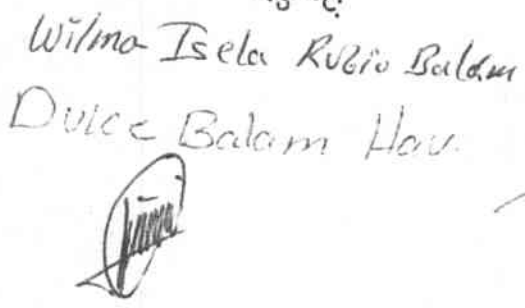 Wilma Isela Rubio Balam
Dulce Balam Hau.